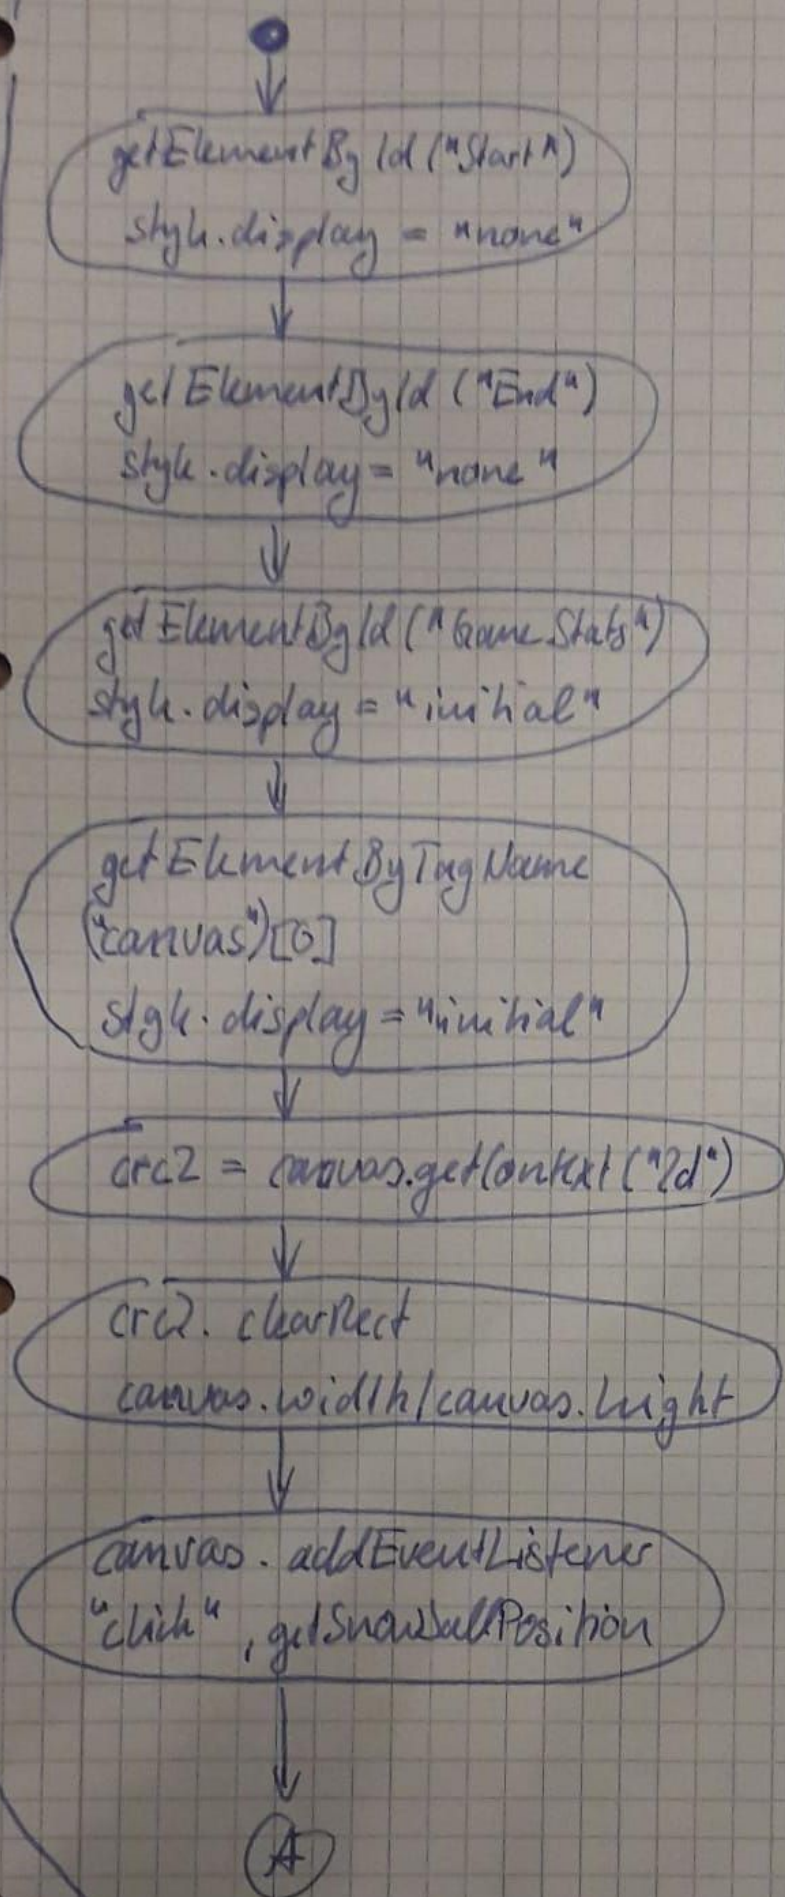 getElementById("Start")
style.display = "none"
getElementById("End")
style.display = "none"
getElementById("GameStats")
style.display = "initial"
getElementByTagName
("canvas")[0]
style.display = "initial"
crc2 = canvas.getContext("2d")
crc2.clearRect
canvas.width/canvas.height
canvas.addEventListener
"click", getSnowballPosition
A